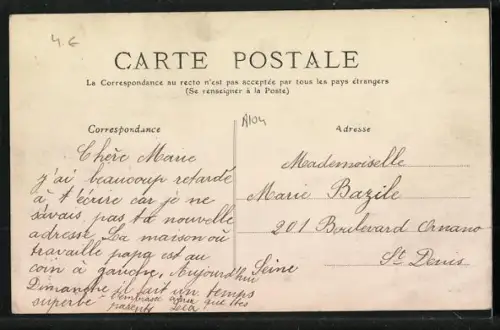 4 €
CARTE POSTALE
La Correspondance au recto n'est pas acceptée par tous les pays étrangers
(Se renseigner à la Poste)
Correspondance
Adresse
Chère Marie
j'ai beaucoup retardé
à t'écrire car je ne
savais pas ta nouvelle
adresse. La maison où
travaille papa est au
coin à gauche. Aujourd'hui
Dimanche il fait un temps
superbe
t'embrasse ainsi que tes
parents
Mademoiselle
Marie Bazile
201 Boulevard Ornano
St Denis
Seine